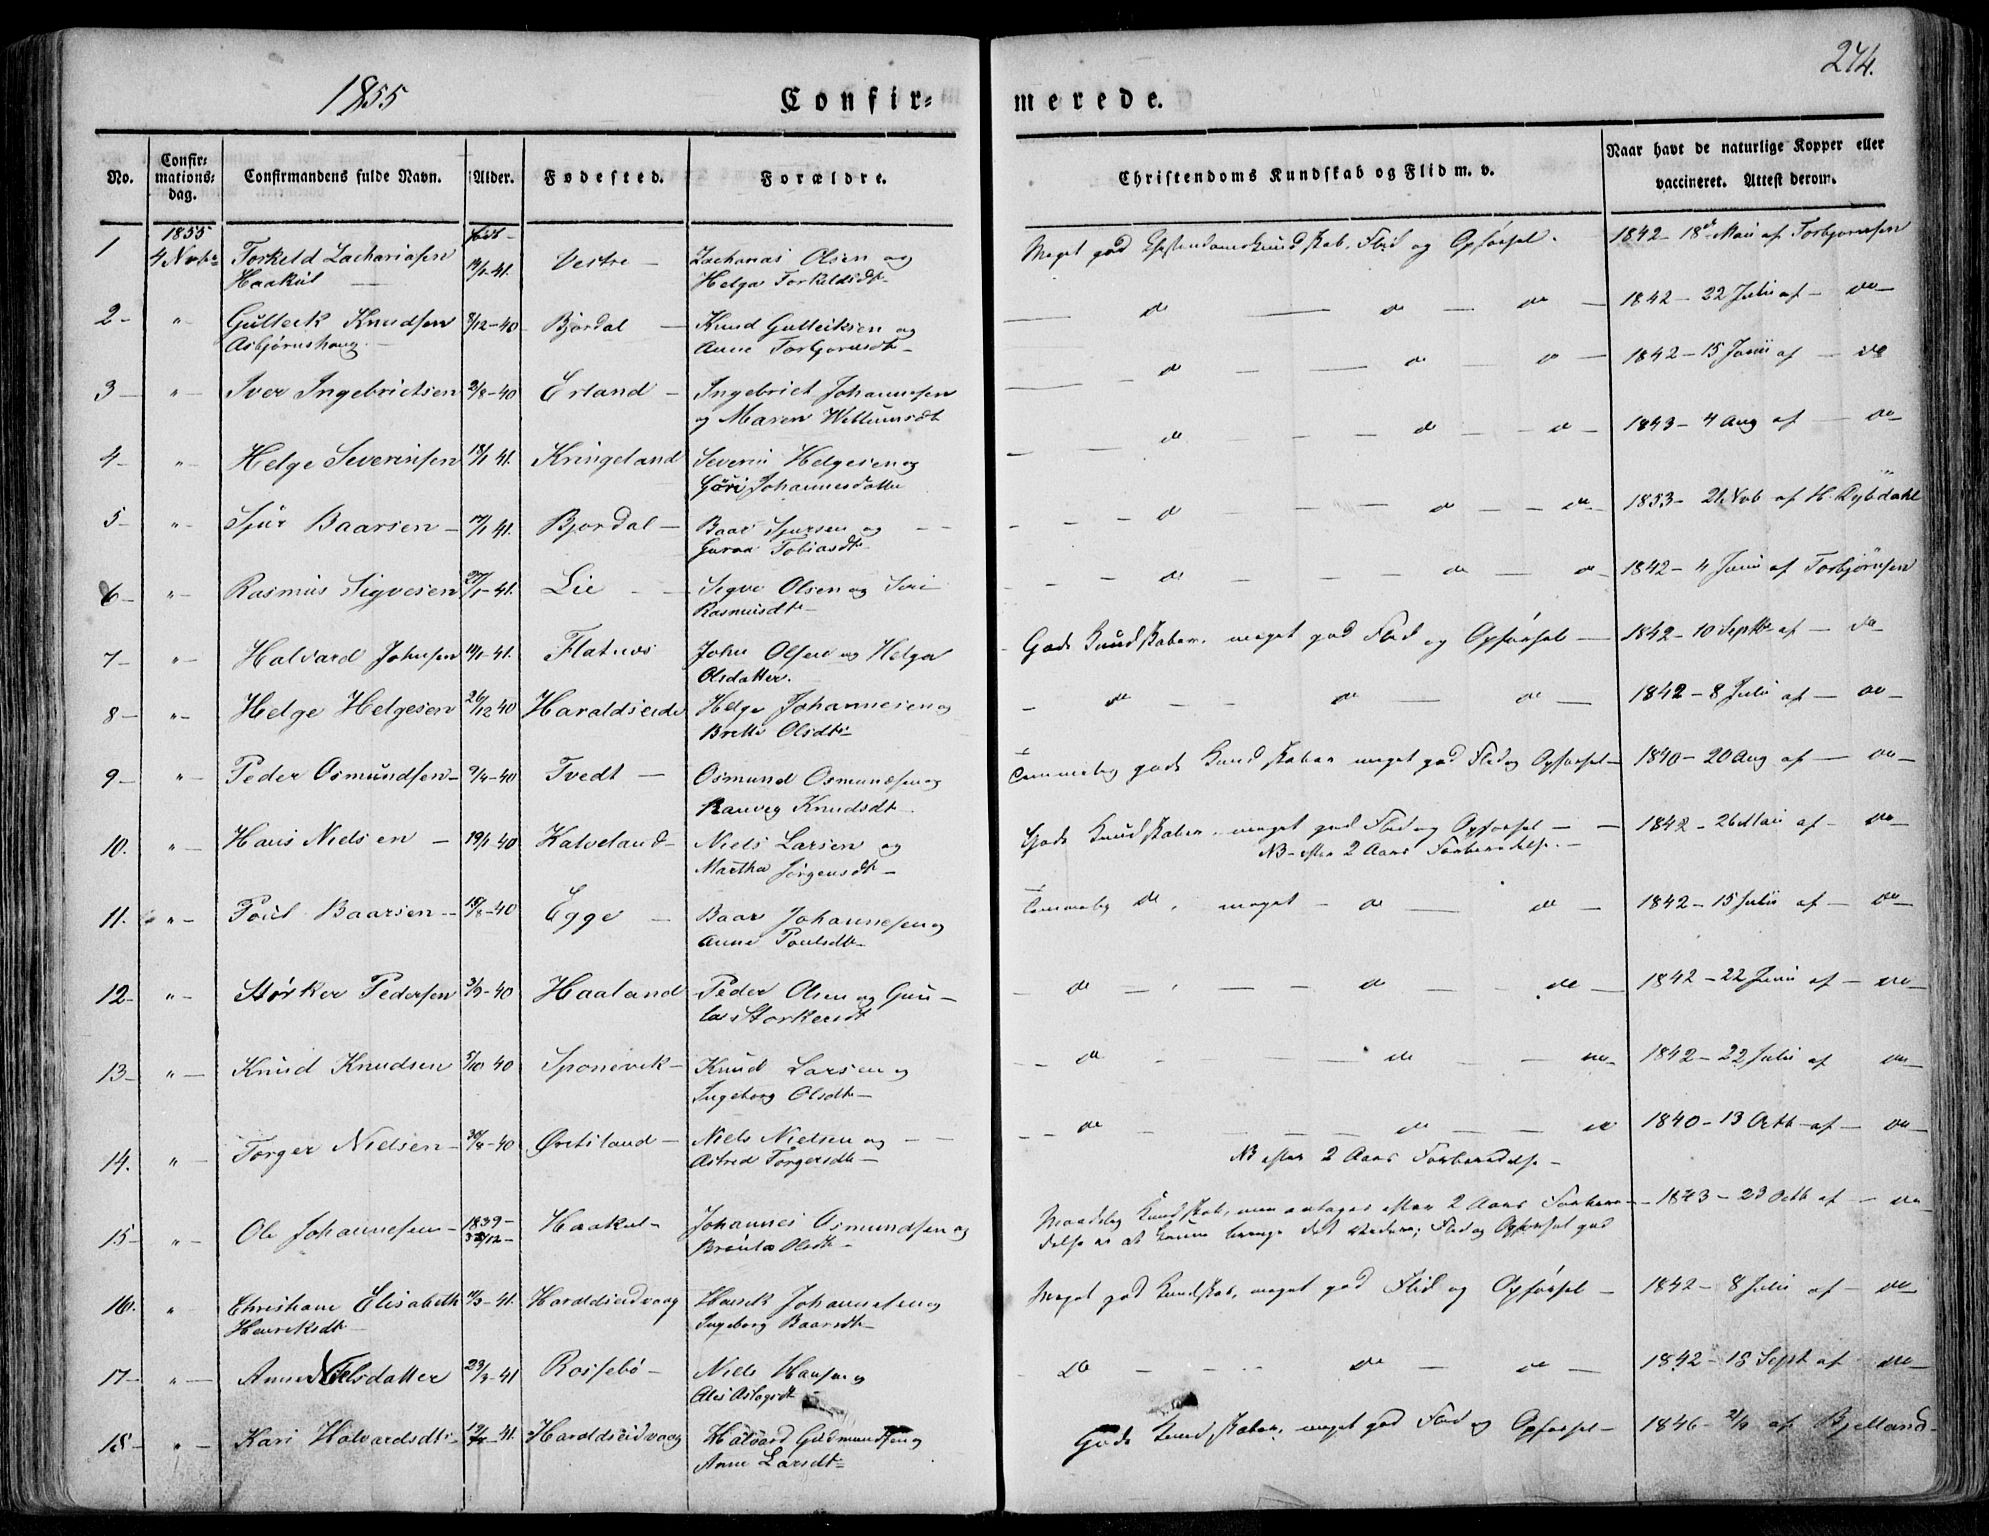 1855
Confir-
merede.
274.
No.
Confir-
mations-
dag.
Confirmandens fulde Navn.
Alder.
Fødested.
Forældre.
Christendoms Kundskab og Flid m. v.
Naar havt de naturlige Kopper eller
vaccineret. Attest derom.
1 1855 4 Novbr Torkeld Zachariasen født Vestre Zacharias Olsen og Meget god Christendomskundskab, Flid og Opførsel. 1842 - 18de Mai af Torbjørnsen
Haakul 41. Helga Torkeldsdtr
2 - " - Gulleik Knudsen 8/12 - 40 Bjordal Knud Gulleiksen og do do do 1842 - 22 Julii af do
Asbjørnshaug Anne Torbjørnsdtr
3 - " - Iver Ingebrictsen 2/8 - 40 Erland Ingebrict Johannesen do do do 1842 - 15 Junii af do
og Maren Willumsdt
4 - " - Helge Severinsen 18/1 41. Kringeland Severin Helgesen og do do do 1843 - 4 Aug af do
Guri Johannesdatter
5 - " - Sjur Baarsen 17/1 41. Bjordal Baar Sjursen og do do do 1853 - 21 Nob af H. Dybdahl
Tobiasdtr
6 - " - Rasmus Sigvesen 27/1 - 41. Lie Sigve Olsen og Siri do do do 1842 - 4 Junii af Torbjørnsen
Rasmusdtr
7 - " - Halvard Johnsen 41. Flatnes John Olsen og Helga Gode Kundskaber, meget god Flid og Opførsel 1842 - 10 Septbr af do
Olsdatter.
8 - " - Helge Helgesen 26/12 40 Haraldseide Helge Johannesen og do do do 1842 - 8 Julii af do
Brette Olsdtr
9 - " - Peder Osmundsen 9/4 - 40 Tvedt Osmund Osmundsen og Temmelig gode Kundskaber meget god Flid og Opførsel 1840 - 20 Aug af do
Ranveg Knudsdtr
10. " - Hans Nielsen 19/1 40 Kalveland Niels Larsen og Gode Kundskaber, meget god Flid og Opførsel 1842 - 26 Mai af do
Martha Jørgensdtr NB - efter 2 Aars Forberedelse.
11. " - Poul Baarsen 18/8 - 40 Egge Baar Johannesen og Temmelig do, meget do do 1842 - 15 Julii af do
Anne Poulsdtr
12 - " - Størker Pedersen 3/9 - 40 Haaland Peder Olsen og Gun- do do do 1842 - 22 Junii af do
la Størkersdt
13 - " - Knud Knudsen 5/10 40 Sponevik Knud Larsen og do do do 1842 - 22 Julii af do
Ingeborg Olsdtr
14. " - Torger Nielsen 30/8 - 40 Øvstsland Niels Nielsen og do do do 1840 - 13 Octb af do
Astred Torgersdtr NB efter 2 Aars Forberedelse
15 - " - Ole Johannesen 1839 - Haakul Johannes Osmundsen og Maadelig Kundskab, men antages efter 2 Aars Forbere- 1843 - 23 Octb af do
/12 - Olsdtr delse ei at kunne bringe det videre; Flid og Opførsel god
16. " Christiane Elisabeth /3 - 41. Haraldseidvaag Henrik Johannesen og Meget god Kundskab, meget god Flid og Opførsel 1842 - 8 Julii af do
Henriksdtr Ingeborg Baarsdtr
17 - " - Anne Nielsdatter 23/3 - 41 Rossebø Niels Hansen og do do do 1842 - 18 Sept af do
Aslagsdtr
18 - " - Kari Halvardsdtr 41. Haraldseidvaag Halvard Gudmundsen og Gode Kundskaber, meget god Flid og Opførsel 1846 - af Bjelland
Anne Larsdtr